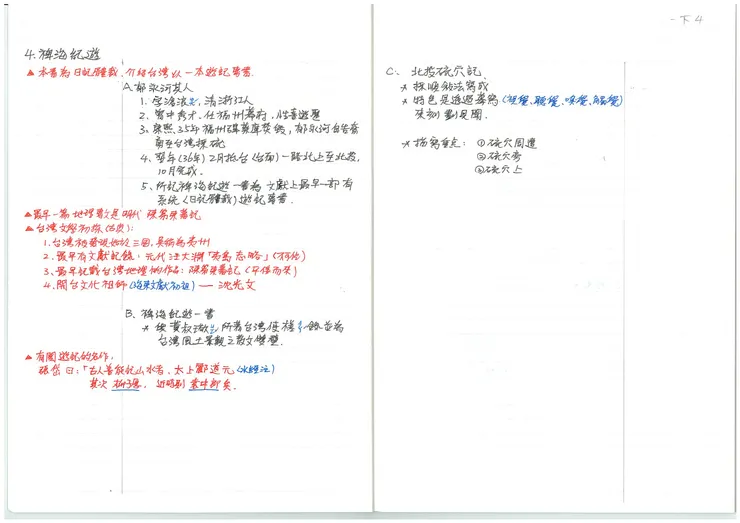 4. 裨海紀遊
▲ 本書為日記體裁,介紹台灣以一本遊記專書.
A. 郁永河其人
1. 字滄浪,清浙江人
2. 習中秀才,任福州幕府,性喜遊歷
3. 康熙35年福州 火藥庫焚燬,郁永河自告奮
勇至台灣採硫
4. 翌年(36年)2月抵台(台南)一路北上至北投,
10月完成.
5. 所記裨海紀遊一書為文獻上最早一部有
系統(日記體裁)遊記專書.
▲ 最早一篇地理散文是明代 陳第東番記
▲ 台灣文學初祿
1. 台灣被發現始於三國,吳稱為夷州
2. 最早有文獻記錄:元代汪大淵「島夷志略」
3. 最早記載台灣地理的作品:陳第東番記
4. 開台文化祖師(海東文獻初祖)—沈光文
B. 裨海紀遊一書
* 與黃叔璥 所著台灣使槎 錄並為
台灣風土景觀之散文雙璧.
▲ 有關遊記的名作:
張岱曰:「古人善敘記山水者,太上酈道元(水經注)
其次柳子厚,近時則袁中郎矣.
一下 4
C. 北投硫穴記
* 採順敘法寫成
* 特色是透過摹寫(視覺、聽覺、味覺、觸覺)
來刻劃見聞.
* 描寫重點: ①硫穴周遭
②硫穴旁
③硫穴上